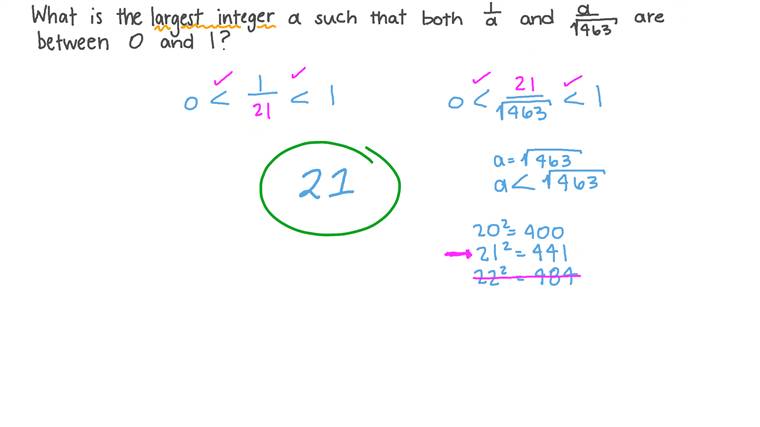 What is the largest integer a such that both 1/a and a/√463 are
between 0 and 1?
0 < 1/21 < 1
0 < 21/√463 < 1
21
a=√463
a<√463
20²=400
21²=441
22²=484